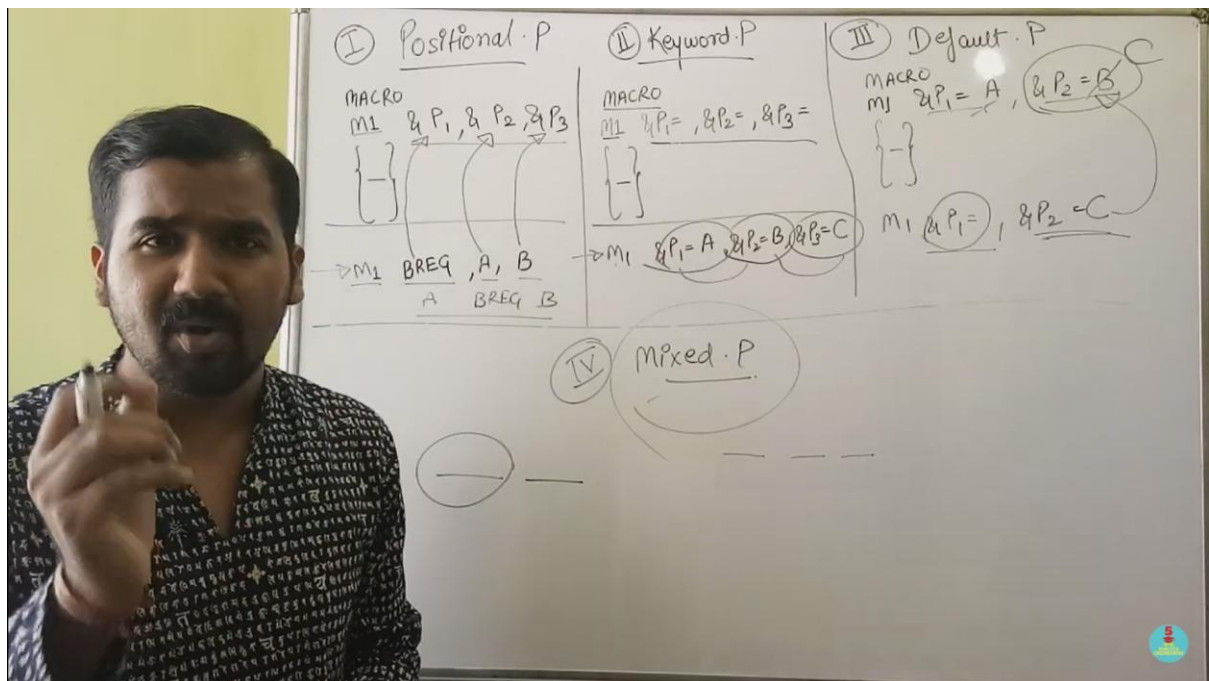 I Positional . P
MACRO
M1 & P1 , & P2 , & P3
{ — }
M1 BREG , A, B
A BREG B
II Keyword . P
MACRO
M1 &P1= , &P2= , &P3=
{ — }
M1 &P1 = A , &P2 = B, &P3 = C
III Default . P
C
MACRO
M1 &P1 = A , &P2 = B
{ — }
M1 &P1 = , &P2 = C
IV Mixed . P
5